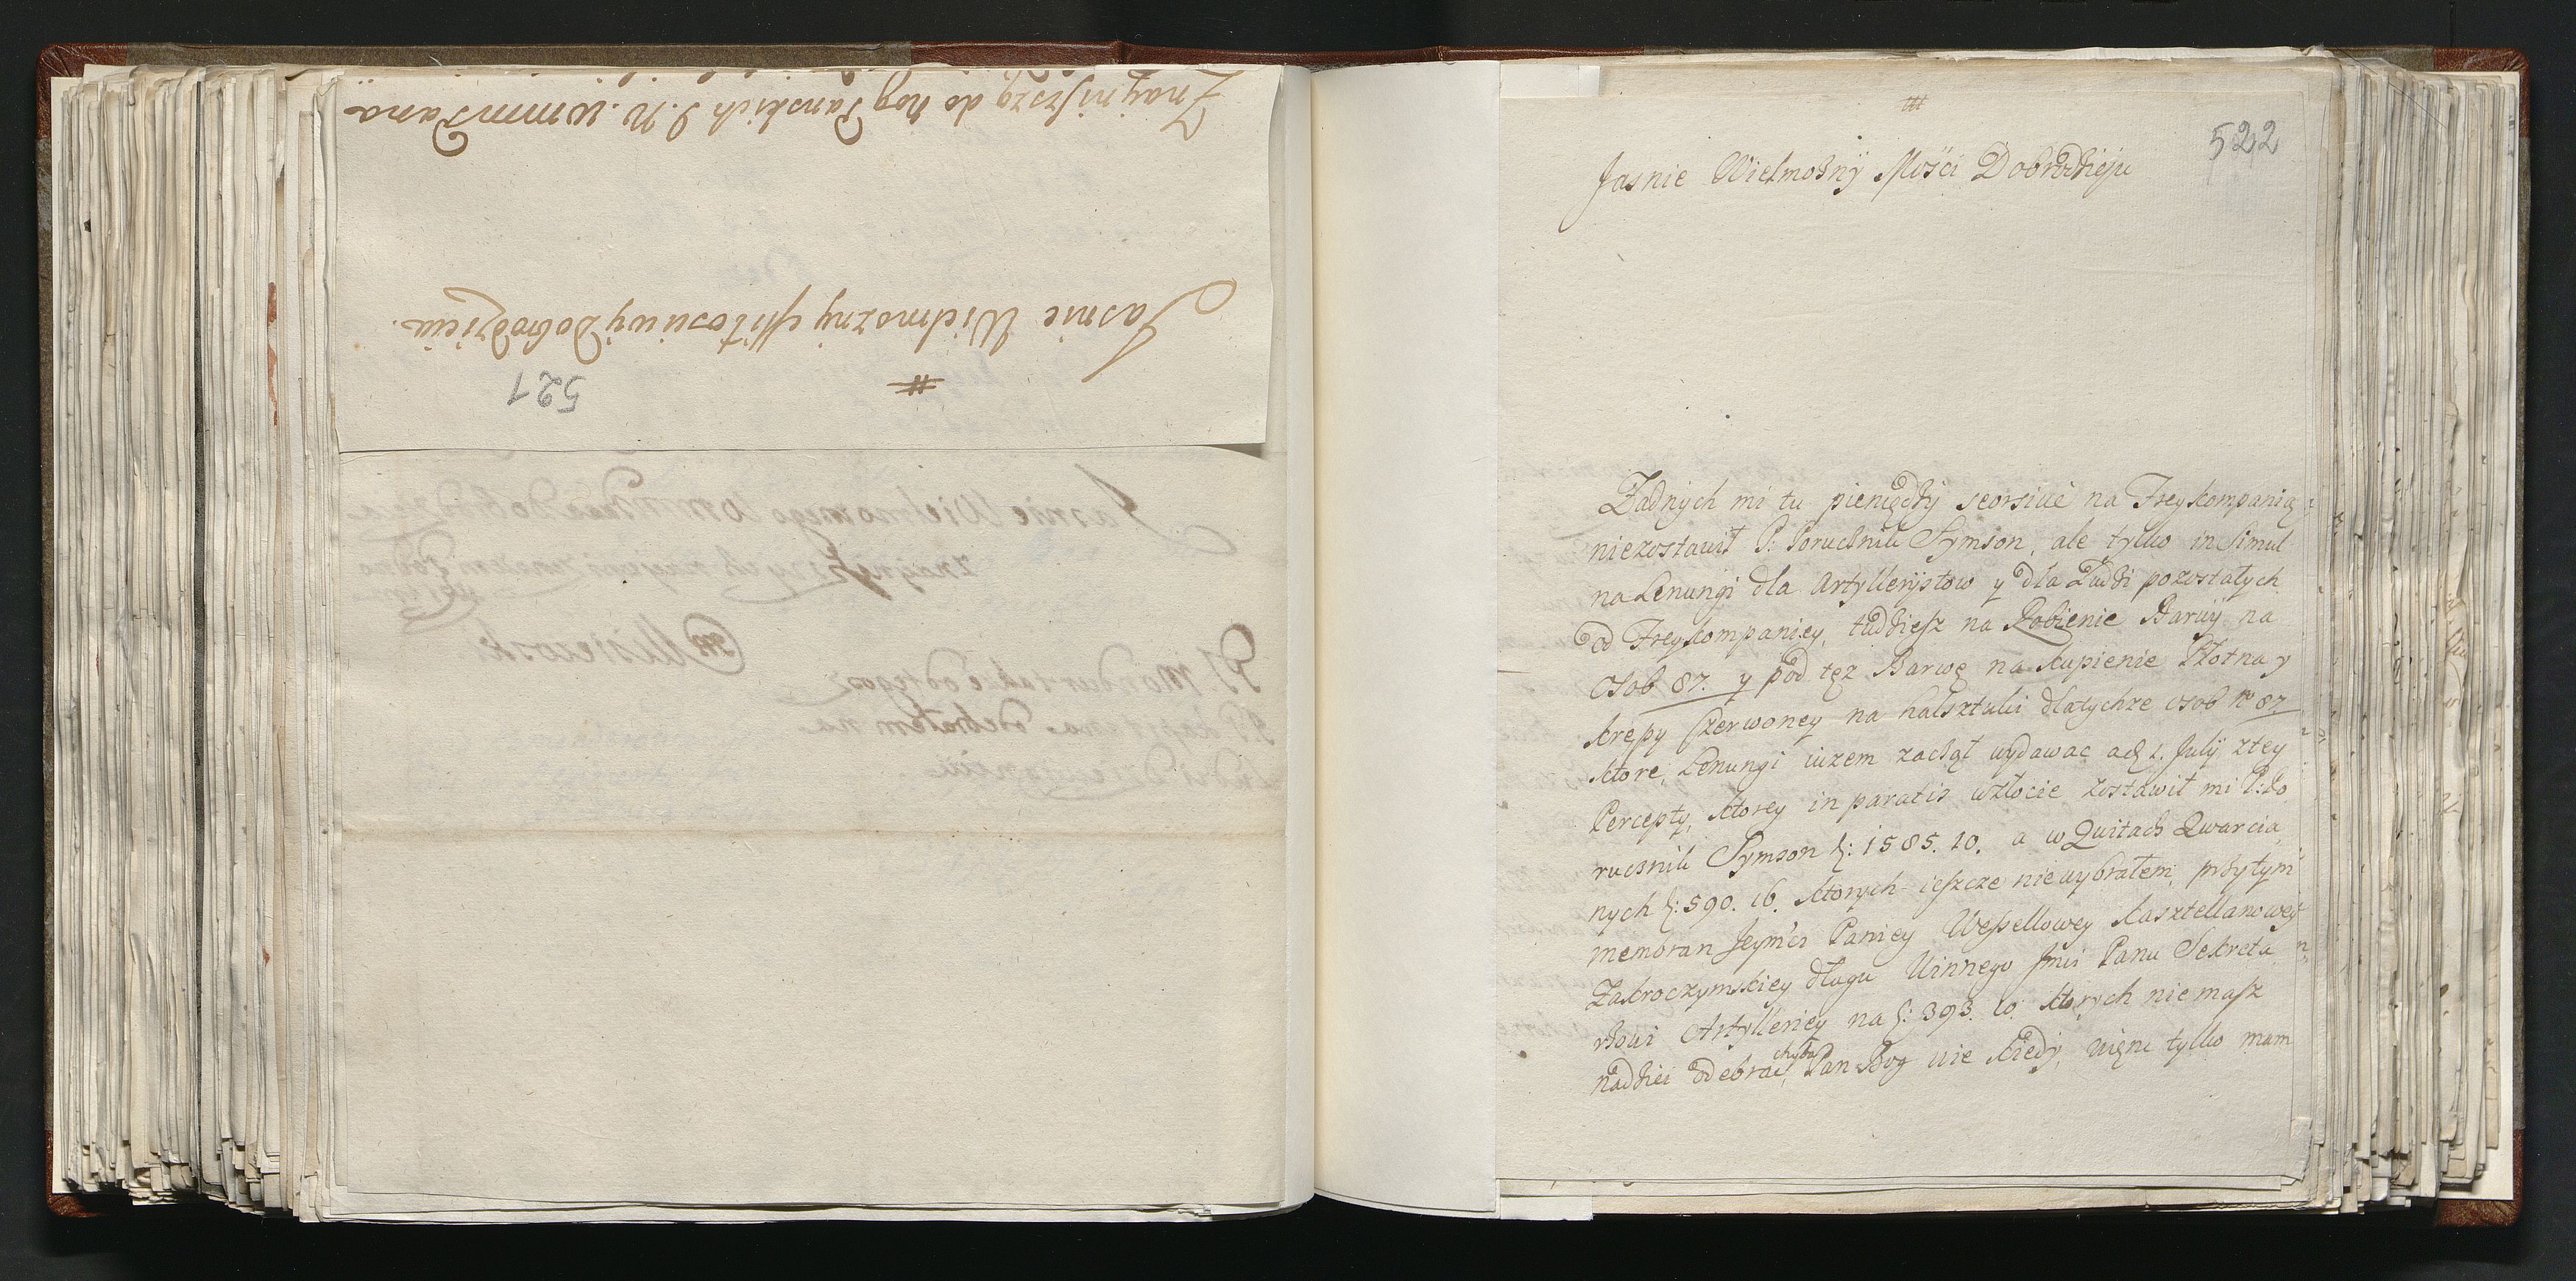 Jasnie Wielmożny Miłosciwy Dobrodzieiu.
Znayniszszą do nog Panskich J. W. wmm Pana
521
522
Jasnie Wielmożny Mości Dobrodzieju
Żadnych mi tu pieniędzy seorsive na Freykompanią
niezostawił P: Poruchnik Symson, ale tylko in Simul
na Lenungi dla Artyllerystow y dla Ludzi pozostałych
od Freykompaniey, tudziesz na Robienie Barwy na
osob 87. y pod tęz Barwę na kupienie Płotna y
krepy Czerwoney na halsztuki dlatychze osob No 87
ktore Lenungi iuzem zaczął wydawac ad 1. July ztey
Percepty, ktorey in paratis wzłocie zostawił mi P: Po
rucznik Symson f: 1585. 10. a w Quitach Qwarcia
nych f: 590. 16. ktorych ieszcze niewybrałem, przytym
membran Jeymci Paniey Wessellowey Kasztellanowey
Zakroczymskiey długu Winnego Jmci Panu Sekreta
rzowi Artylleriey na f: 393. 10. ktorych niemasz
nadziei odebrac, chyba Pan Bog wie kiedy, więni tylko mam